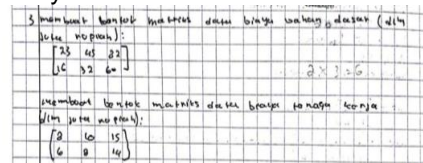 3 membuat bentok matriks data biaya bahan dasar (dlm
jota ropiah):
[23 45 82
16 32 60]
2 x 3 = 6
membuat bentok matriks data biaya tenaga kerja
(dlm jota ropiah):
[2 10 15
6 8 14]